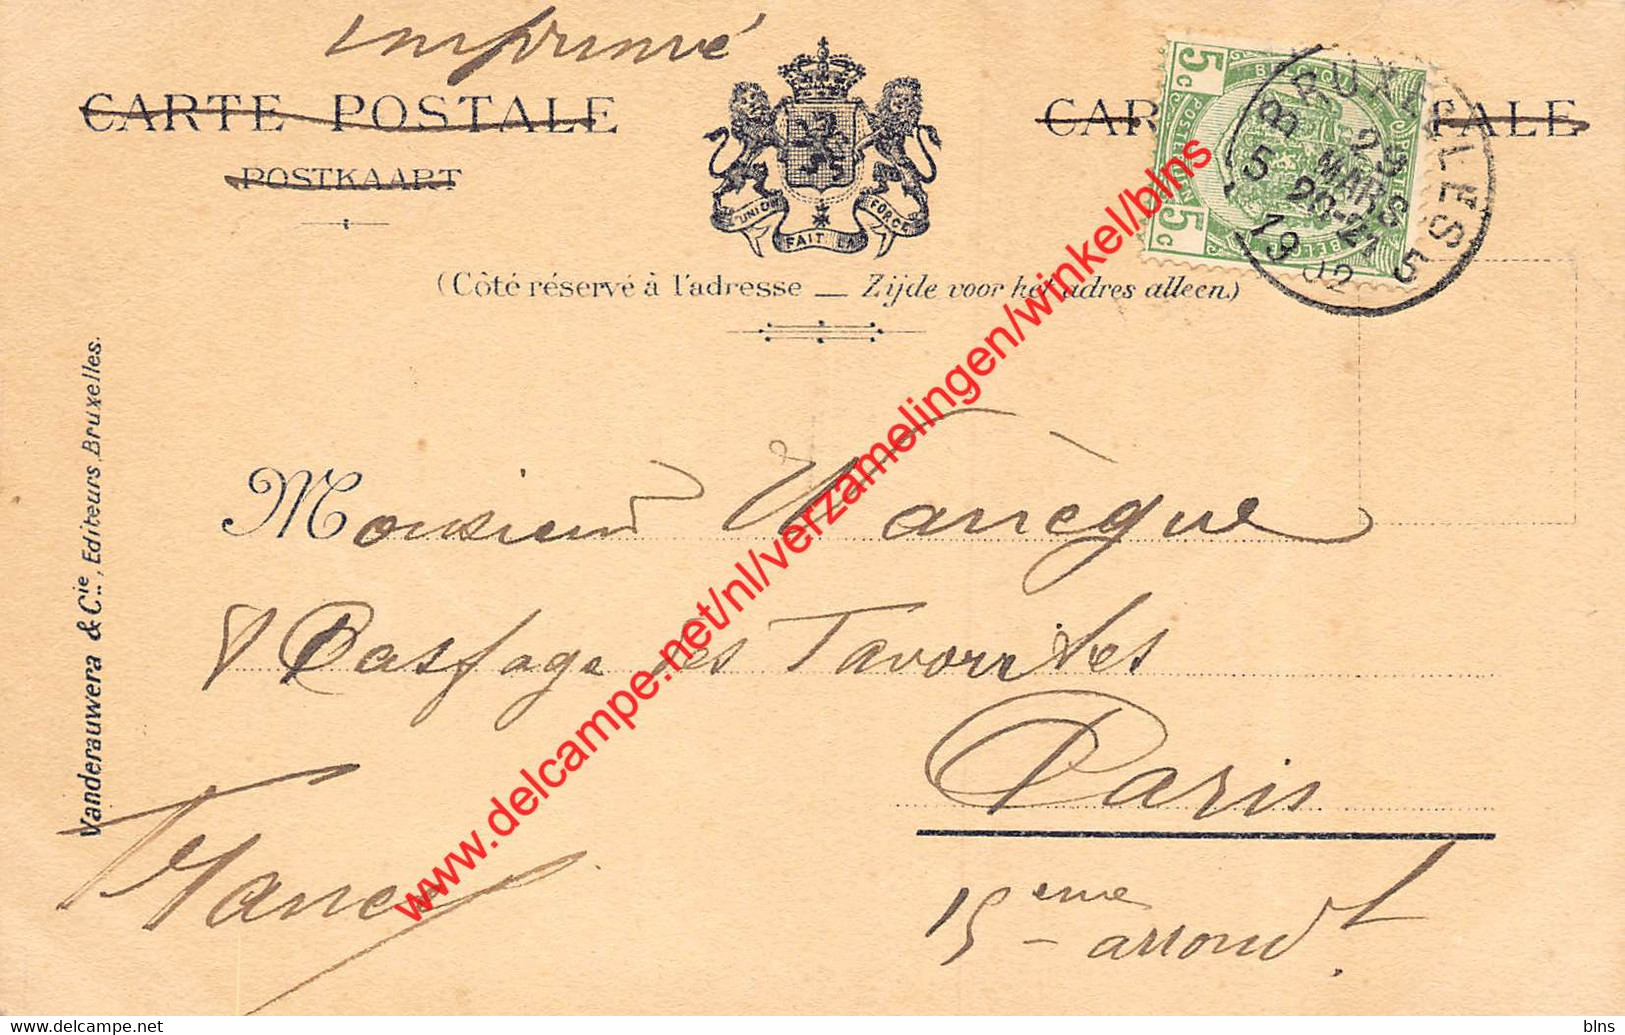 Imprimé
CARTE POSTALE
POSTKAART
CAR TALE
L'UNION FAIT LA FORCE
5c BELGIQUE POSTERIJEN BELGIË 5c
BRUXELLES 5
23 MARS 20-21
1902
(Côté réservé à l'adresse — Zijde voor het adres alleen.)
Vanderauwera & Cie., Editeurs, Bruxelles.
Monsieur Warrègue
8 Passage des Favorites
Paris
France
15 eme arrondt.
www.delcampe.net/nl/verzamelingen/winkel/blns
delcampe.net
blns